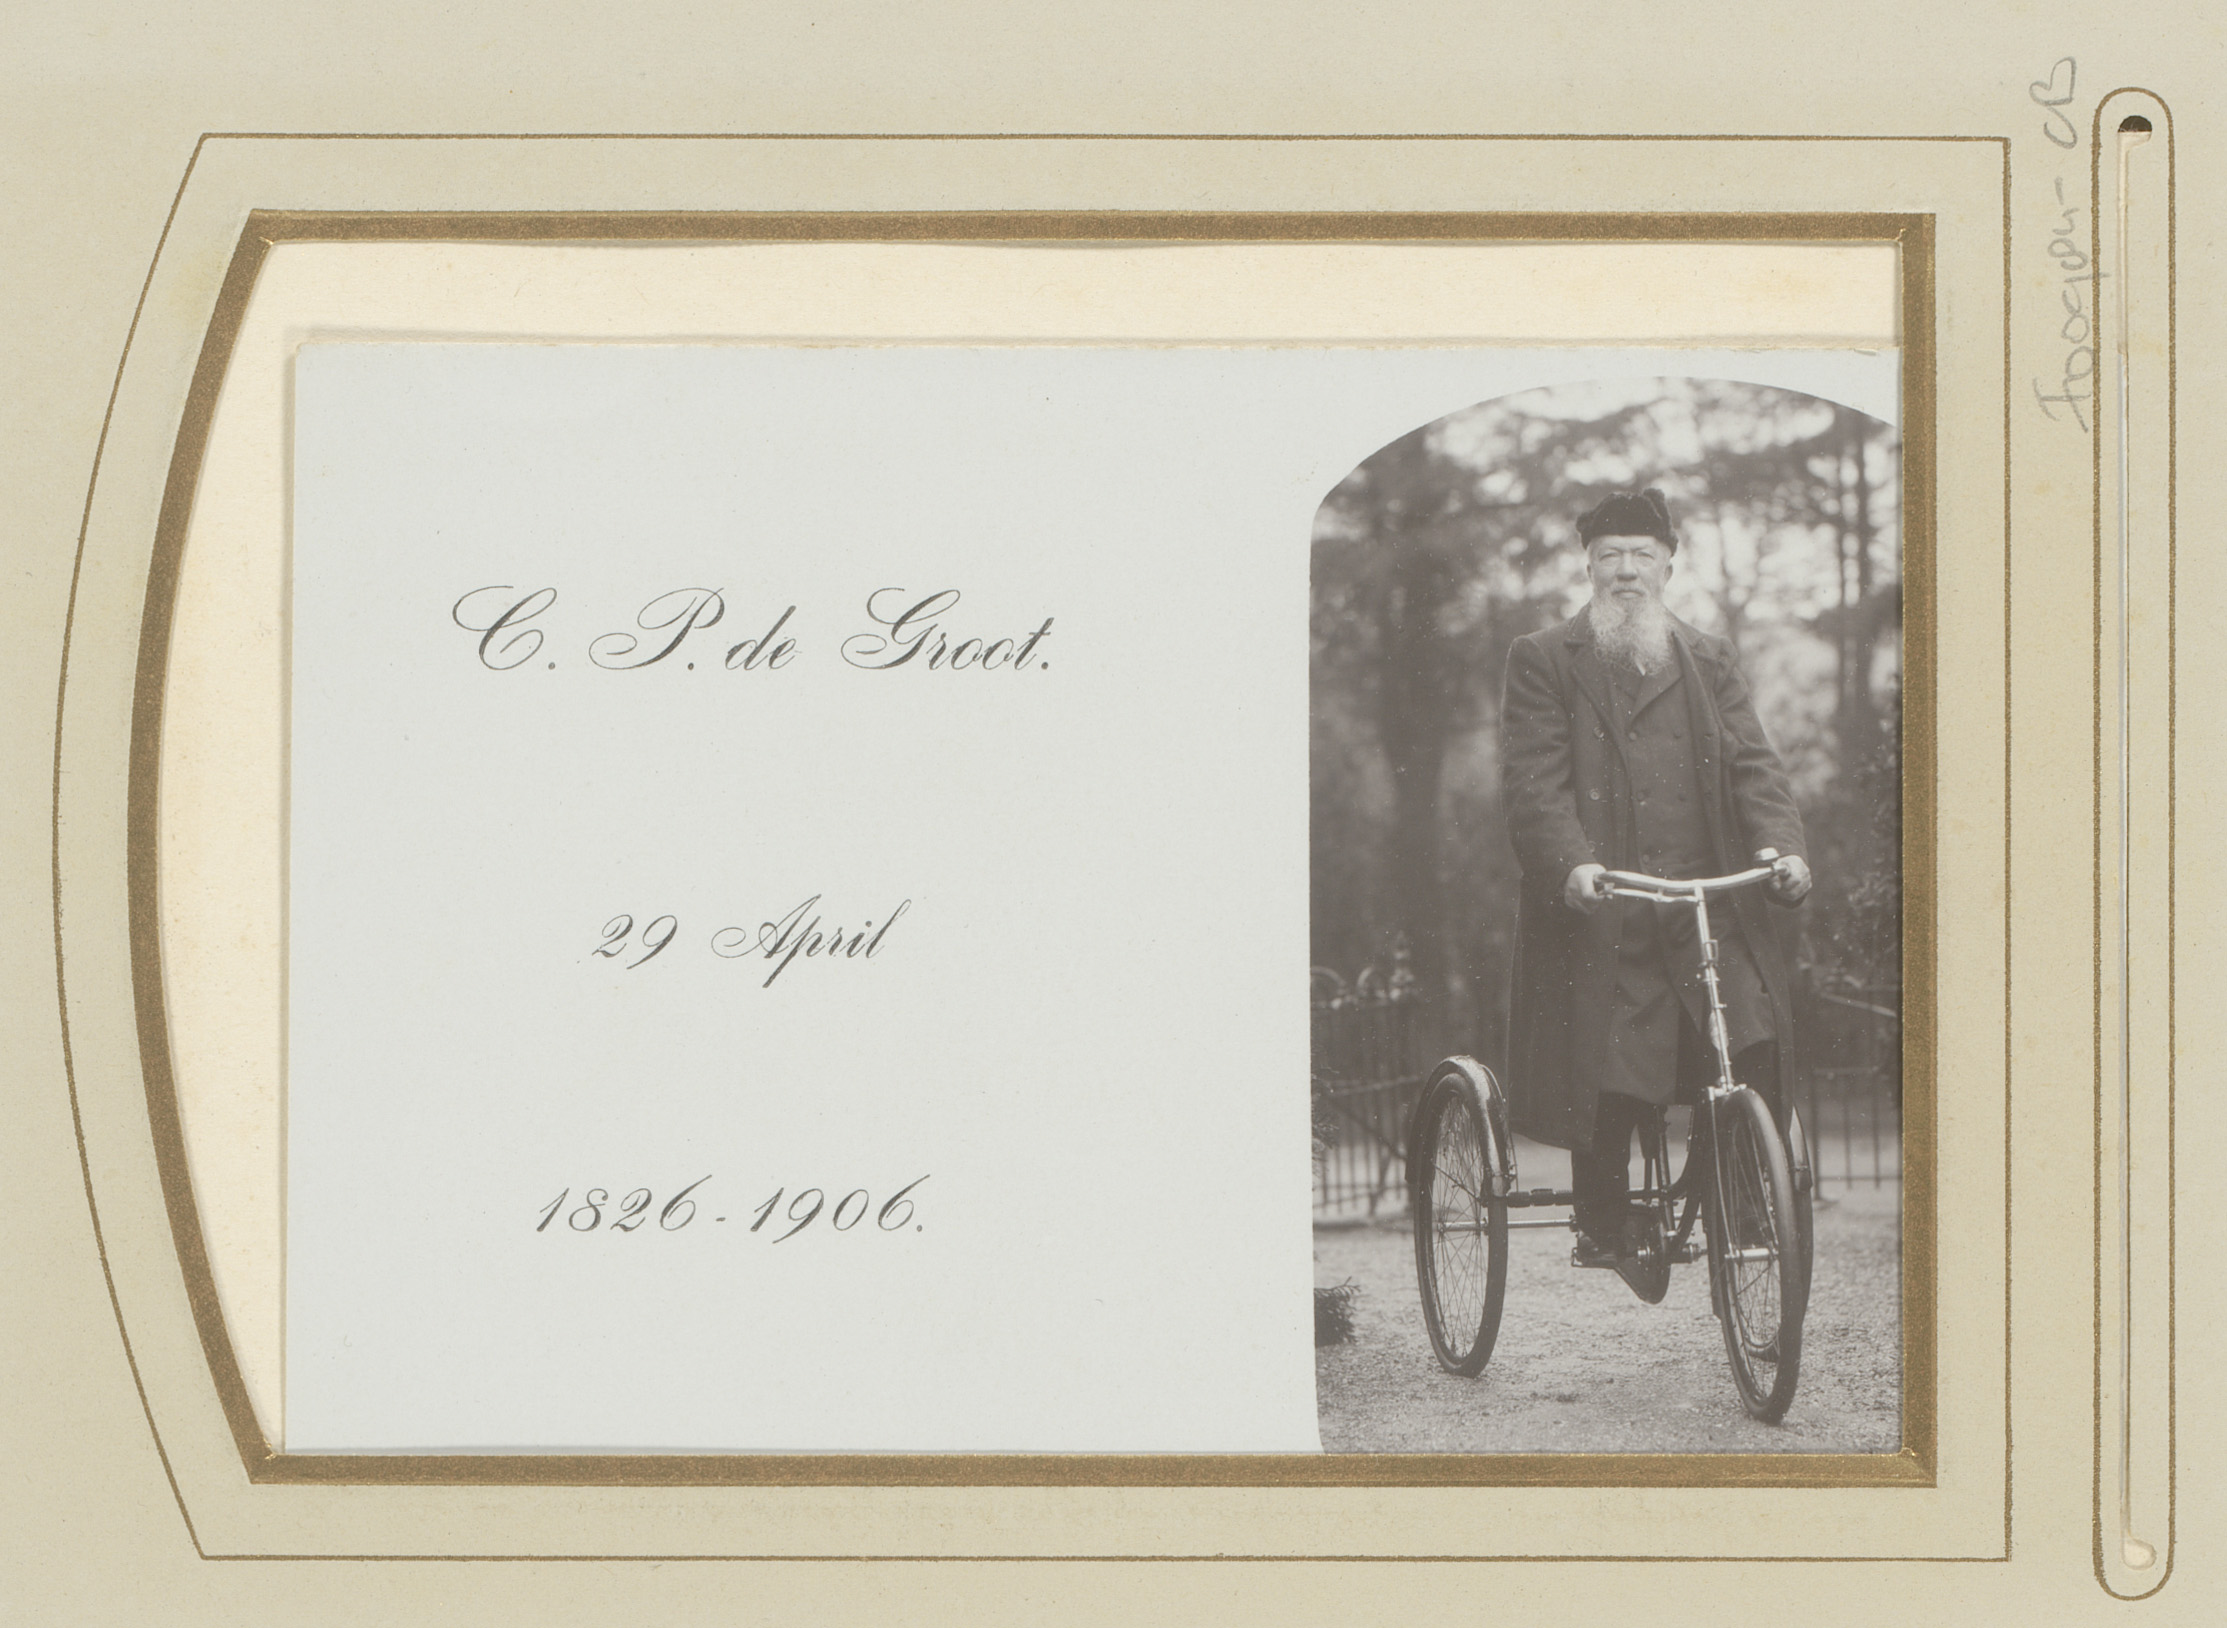 C. P. de Groot.
29 April
1826 - 1906.